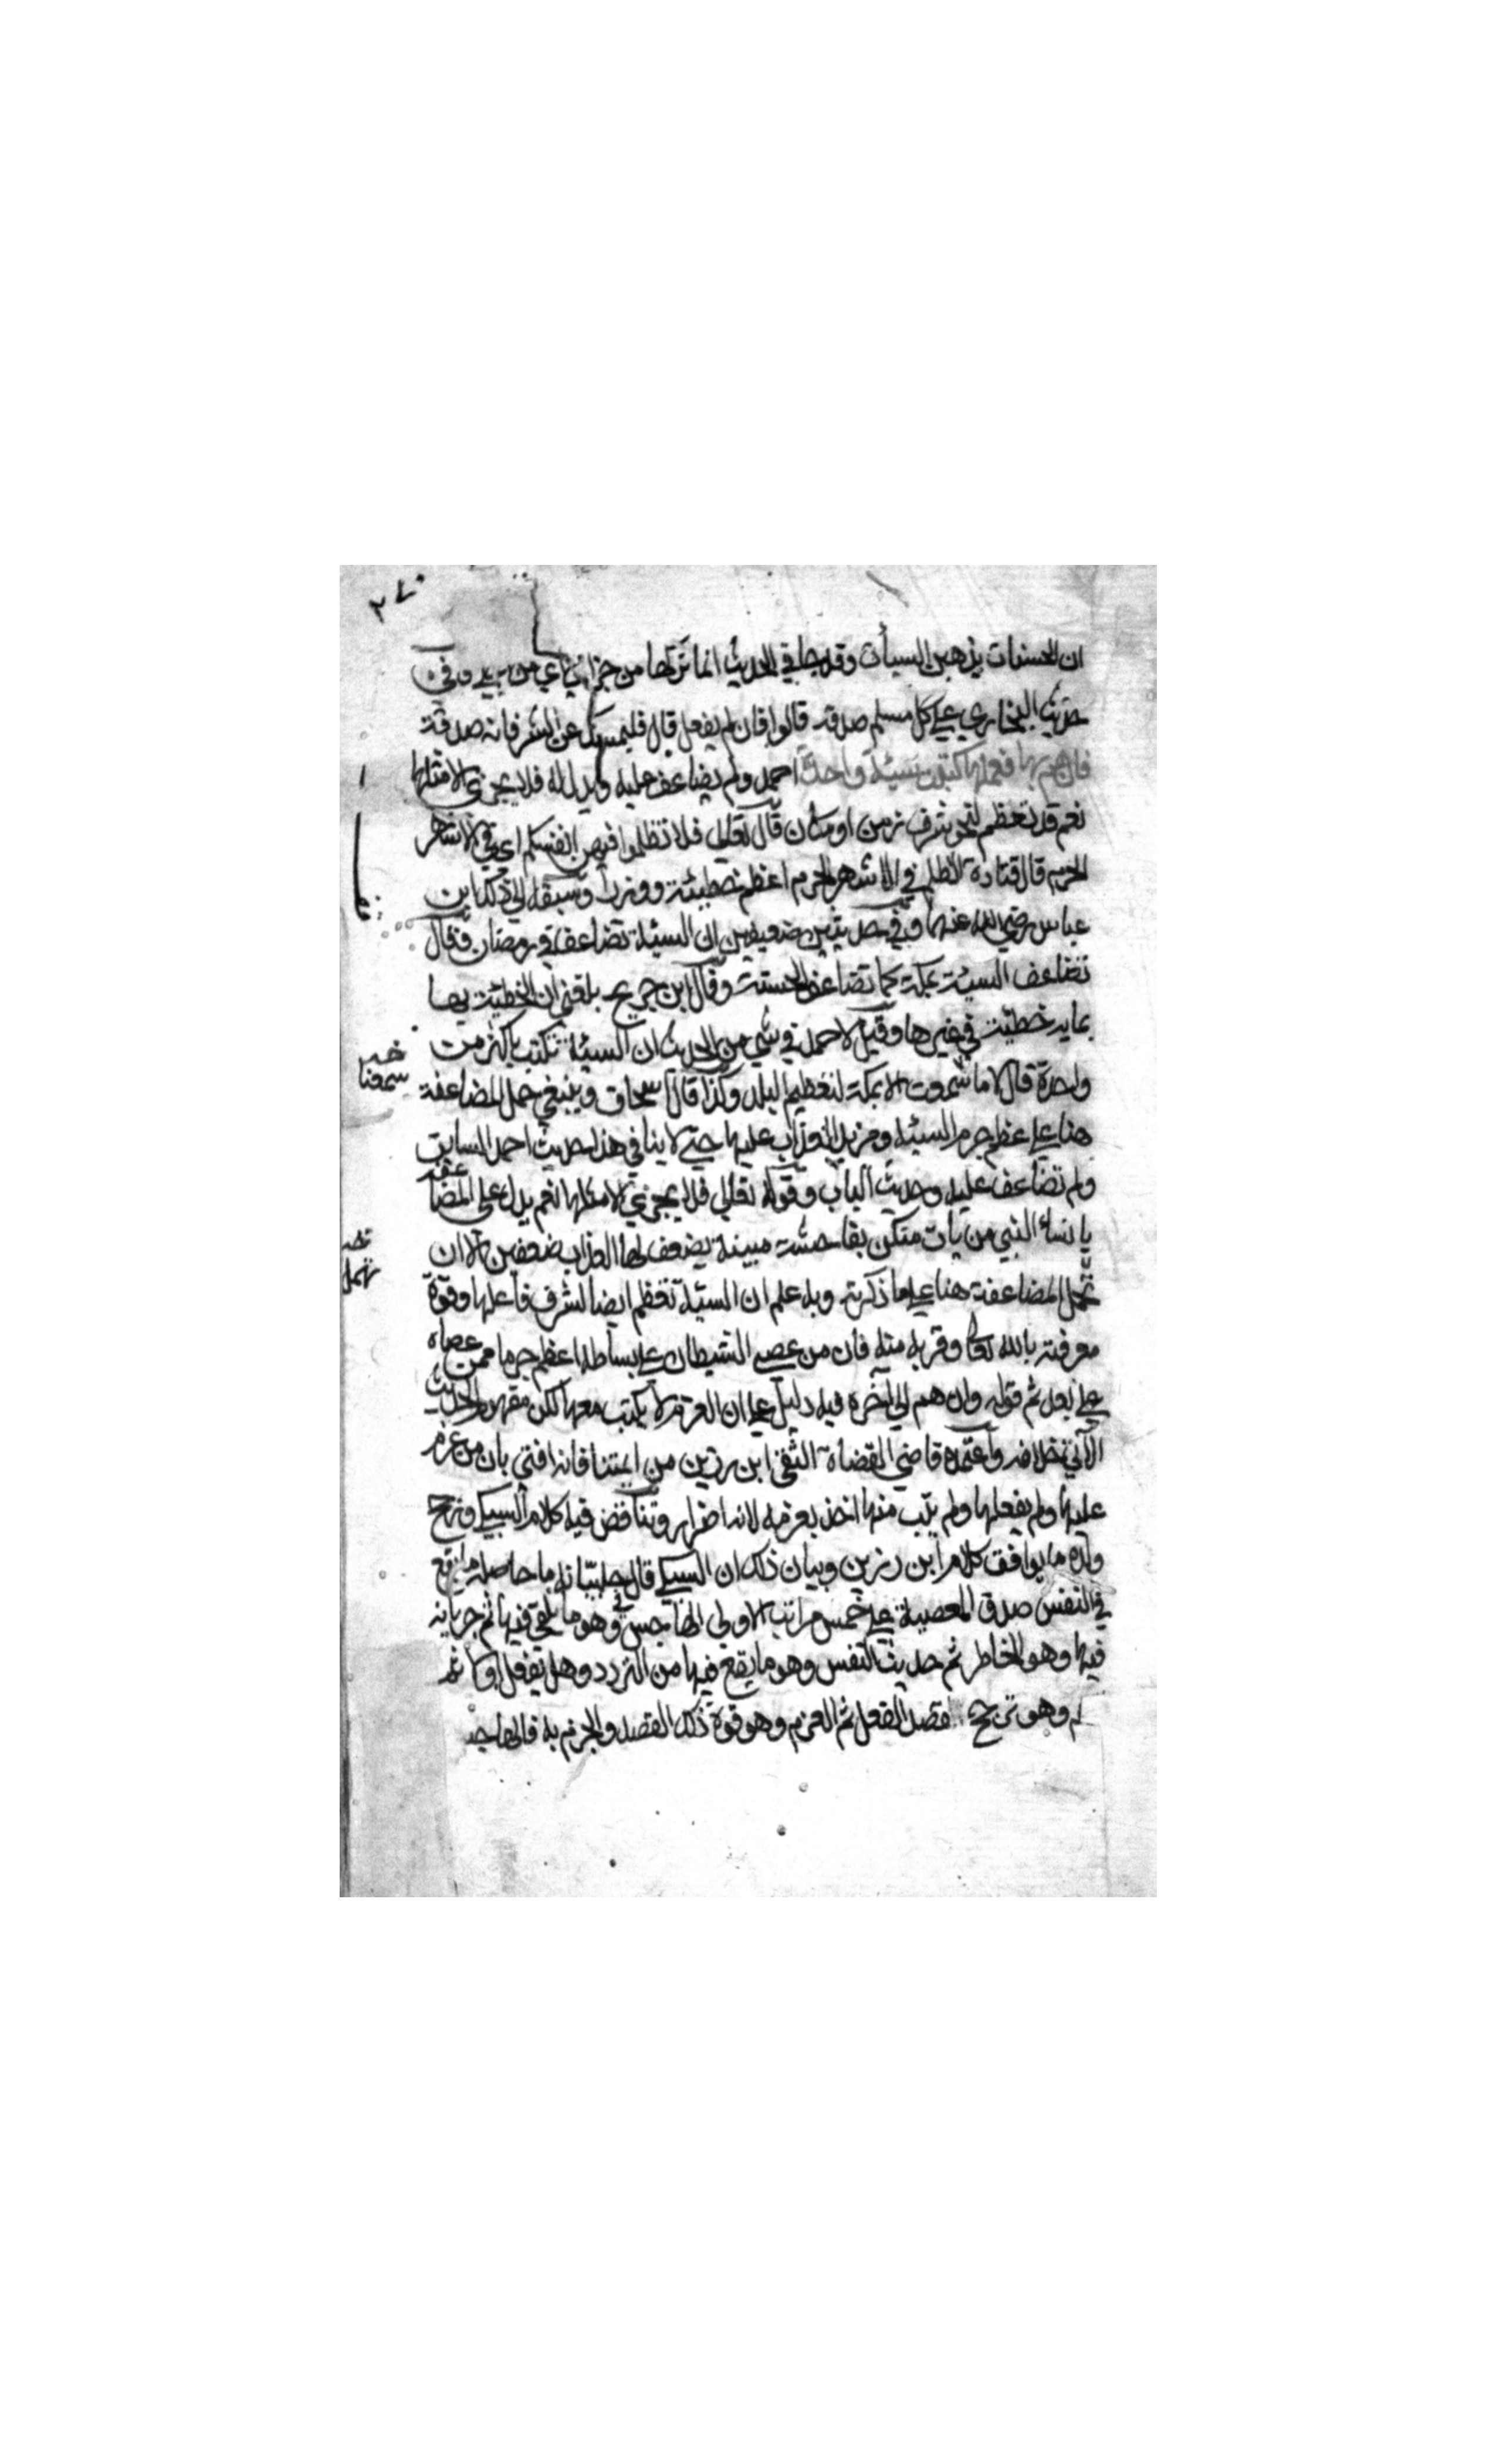 ان الحسنات يذهبن السيأت وقد جا في الحديث انما تركها من جراي اي من اجلي وفي
حديث البخاري علي كل مسلم صدقة قالوا فان لم يفعل قال فليمسك عن الشر فانه صدقة
فان هم بها فعملها كتبت سيئة واحدة احمد ولم تضاعف عليه ويدل له فلا يجزي الا مثلها
نعم قد تعظم لنحو شرف زمن او مكان قال تعالى فلا تظلموا فيهن انفسكم اي في الاشهر
الحرم قال قتادة الظلم في الاشهر الحرم اعظم خطيئة ووزرا وسبقه الى ذلك ابن
عباس رضي الله عنهما وفي حديثين ضعيفين ان السيئة تضاعف في رمضان وقال
تضاعف السيئة بمكة كما تضاعف الحسنة وقال ابن جريج بلغني ان الخطيئة بها
بماية خطيئة في غيرها وقيل لاحمد في شي من الحديث ان السيئة تكتب باكثر من
واحدة قال لا ما سمعت الا بمكة لتعظيم البلد وكذا قال اسحاق وينبغي حمل المضاعفة
هنا علي عظم جرم السيئة ومزيد العذاب عليها حتي لا ينافي هذا حديث احمد السابق
ولم تضاعف عليه وحديث الباب وقوله تعالى فلا يجزي الا مثلها نعم يدل على المضاعفة
يا نساء النبي من يات منكن بفاحشة مبينة يضعف لها العذاب ضعفين الا ان
تحمل المضاعفة هنا علي ما ذكرته وبه علم ان السيئة تعظم ايضا لشرف فاعلها وقوة
معرفته بالله تعالى وقربه منه فان من عصي الشيطان علي بساطه اعظم جرما ممن عصاه
علي بعد ثم قوله وان هم الى آخره فيه دليل علي ان العزم لا يكتب معها لكن مفهوم الحديث
الآتي بخلافه واعتمده قاضي القضاة التقي ابن رزين من ايمتنا فانه افتي بان من عزم
عليها ولم يفعلها ولم يتب منها اخذ بعزمه لانه اصرار وتناقض فيه كلام السبكي ورجح
ولده ما يوافق كلام ابن رزين وبيان ذلك ان السبكي قال في حلبياته ما حاصله ما يقع
في النفس صدق المعصية علي خمس مراتب الاولى الهاجس وهو ما يلقى فيها ثم جريانه
فيها وهو الخاطر ثم حديث النفس وهو ما يقع فيها من التردد وهل يفعل او لا ثم
وهو ترجح قصد الفعل ثم العزم وهو قوة ذلك القصد والجزم به فالهاجس
سمعنا
تحمل